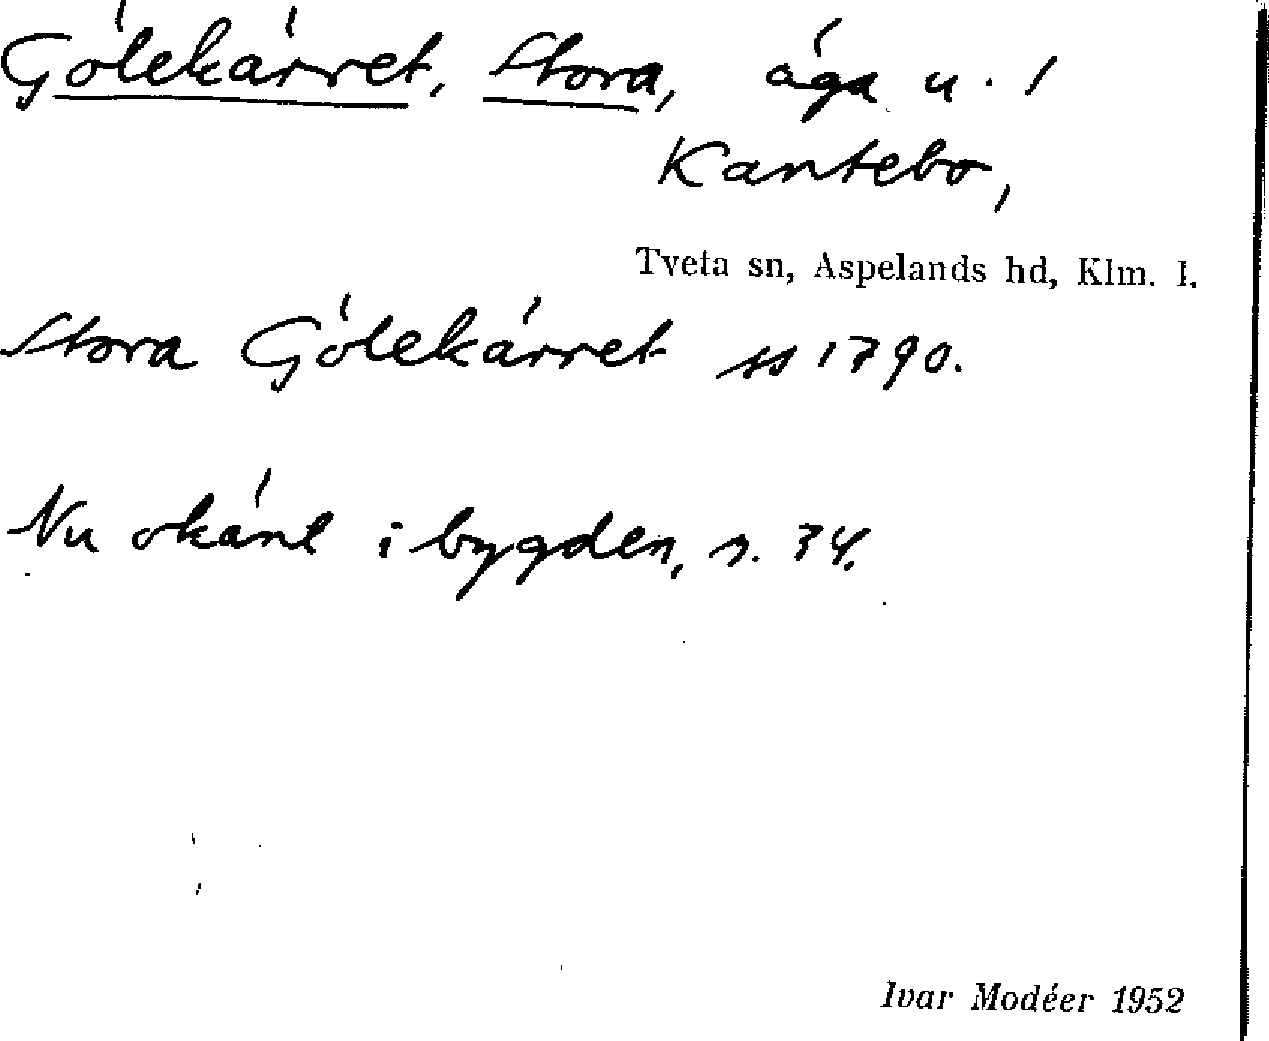 Gölekärret, Stora, äga u. 1
Kantebo,
Tveta sn, Aspelands hd, Klm. l.
Stora Gölekärret ss 1790.
Nu okänt i bygden, s. 34.
Ivar Modéer 1952